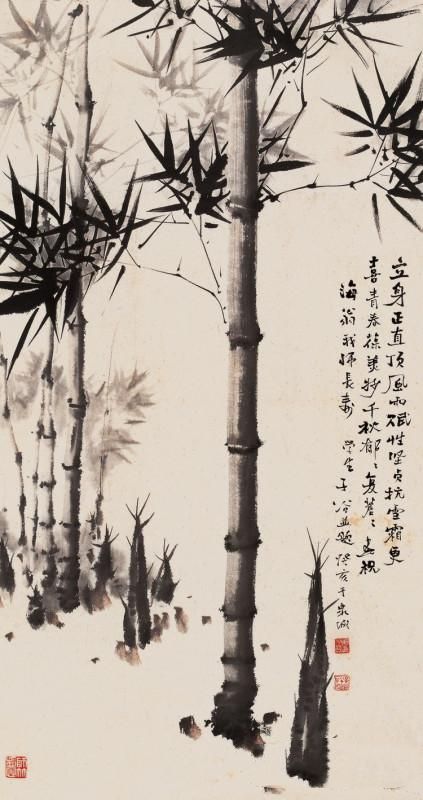 立身正直顶风雨赋性坚贞抗雪霜更
喜青春葆美妙千秋郁〻复苍〻 画祝
海翁我师长寿
学生子谷并题 癸亥于泉城